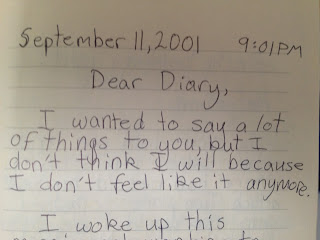 September 11, 2001 9:01 PM
Dear Diary,
I wanted to say a lot
of things to you, but I
don't think I will because
I don't feel like it anymore.
I woke up this